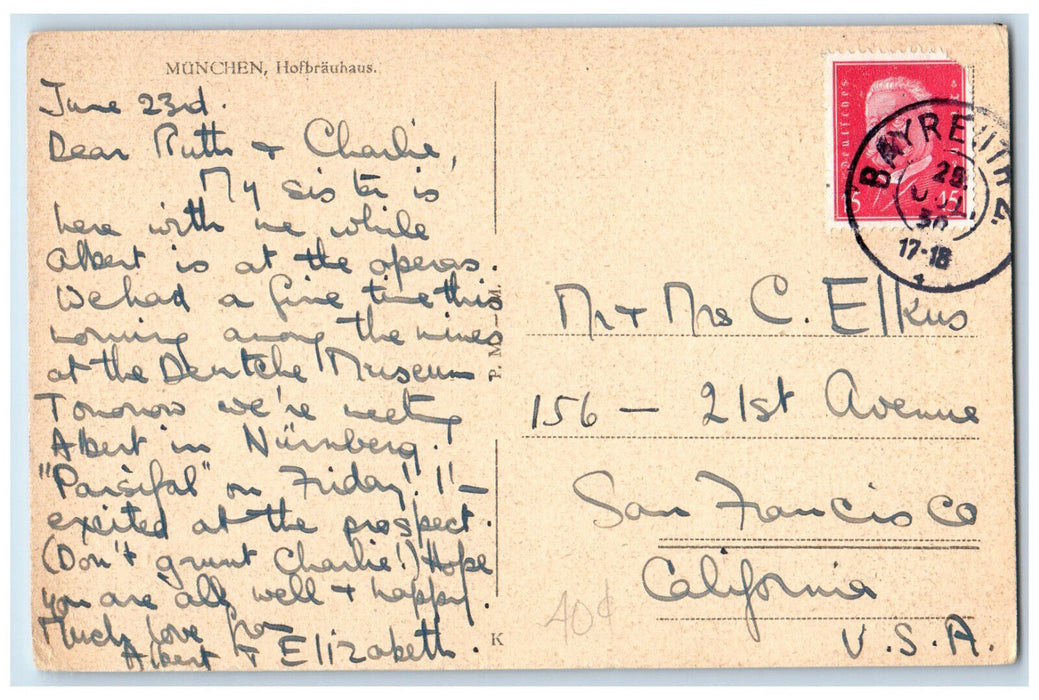 MÜNCHEN, Hofbräuhaus.
June 23rd.
Dear Ruth + Charlie,
My sister is
here with me while
Albert is at the operas.
We had a fine time this
morning among the mines
at the Deutche Museum
Tomorrow we're meeting
Albert in Nürnberg.
"Parsifal" on Friday! I'm
excited at the prospect.
(Don't grunt Charlie!) Hope
you are all well + happy.
Much love from
Albert + Elizabeth.
P. M.
K
Deutsches
15 45
BAYREUTH 2.
28
JUL.
30
17-18
Mr + Mrs C. Elkus
156 — 21st Avenue
San Francisco
California
U.S.A.
40¢